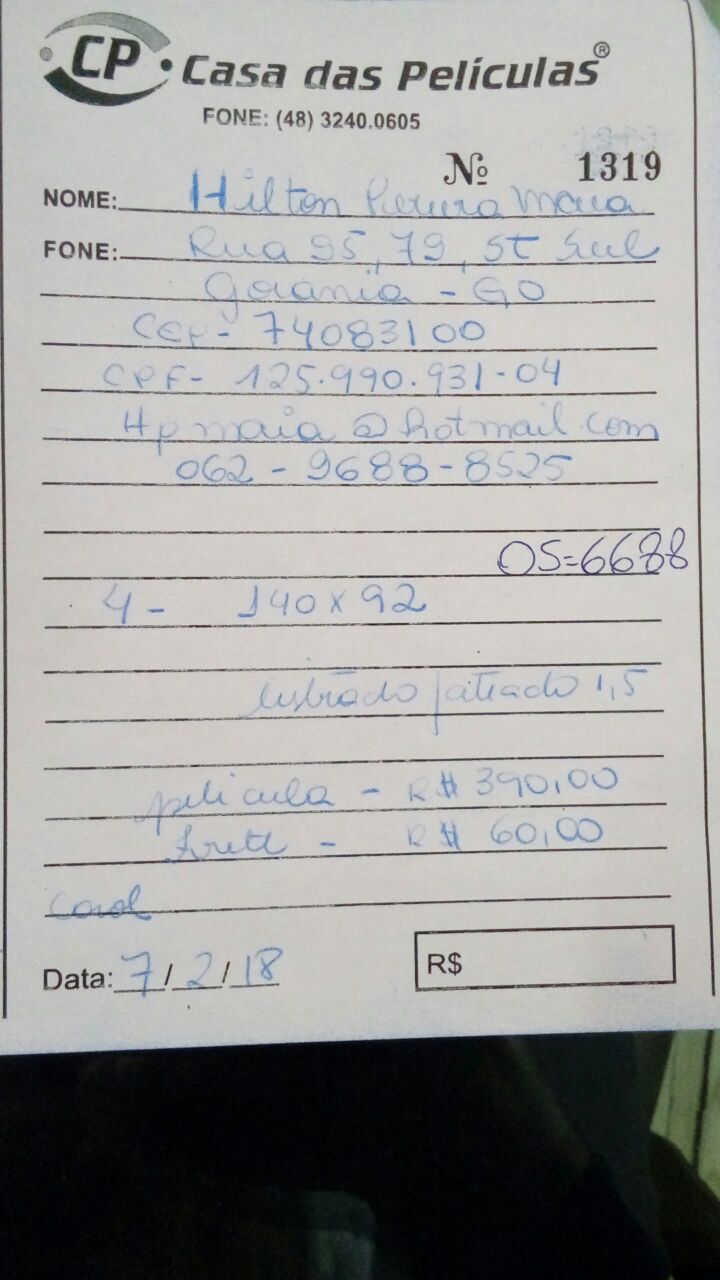 CP. Casa das Películas®
FONE: (48) 3240.0605
Nº 1319
NOME: Hilton Pereira Maia
FONE: Rua 95, 79, St Sul
Goiânia - GO
CEP- 74083100
CPF- 125.990.931-04
Hpmaia@hotmail.com
062 - 9688-8525
OS=6688
4 - 140x92
listrado jateado 1,5
pelicula - R$ 390,00
Frete - R$ 60,00
Carol
Data: 7/2/18 R$